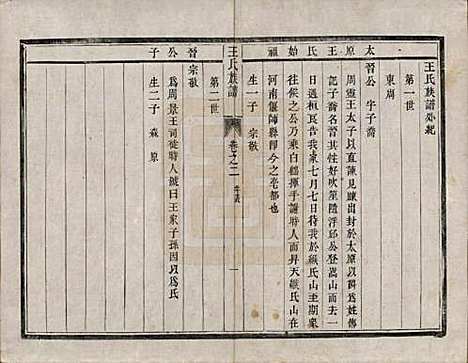 王氏族譜外紀
第一世
東周
太 晉公 字子喬
原 周靈王太子以直諫見出封於太原以爲姓傳
王 記子喬名晉其性好吹笙隨浮邱公登嵩山而去一
氏 日遇桓良告我家七月七日待我於緱氏山至期衆
始 往候之公乃乘白鶴揮手謝時人而昇天緱氏山在
祖 河南偃師縣即今之亳都也
生一子 宗敬
王氏族譜 卷之二 一
第二世
晉 宗敬
公 爲周景王司徒時人號曰王家子孫因以爲氏
子 生二子 森 原